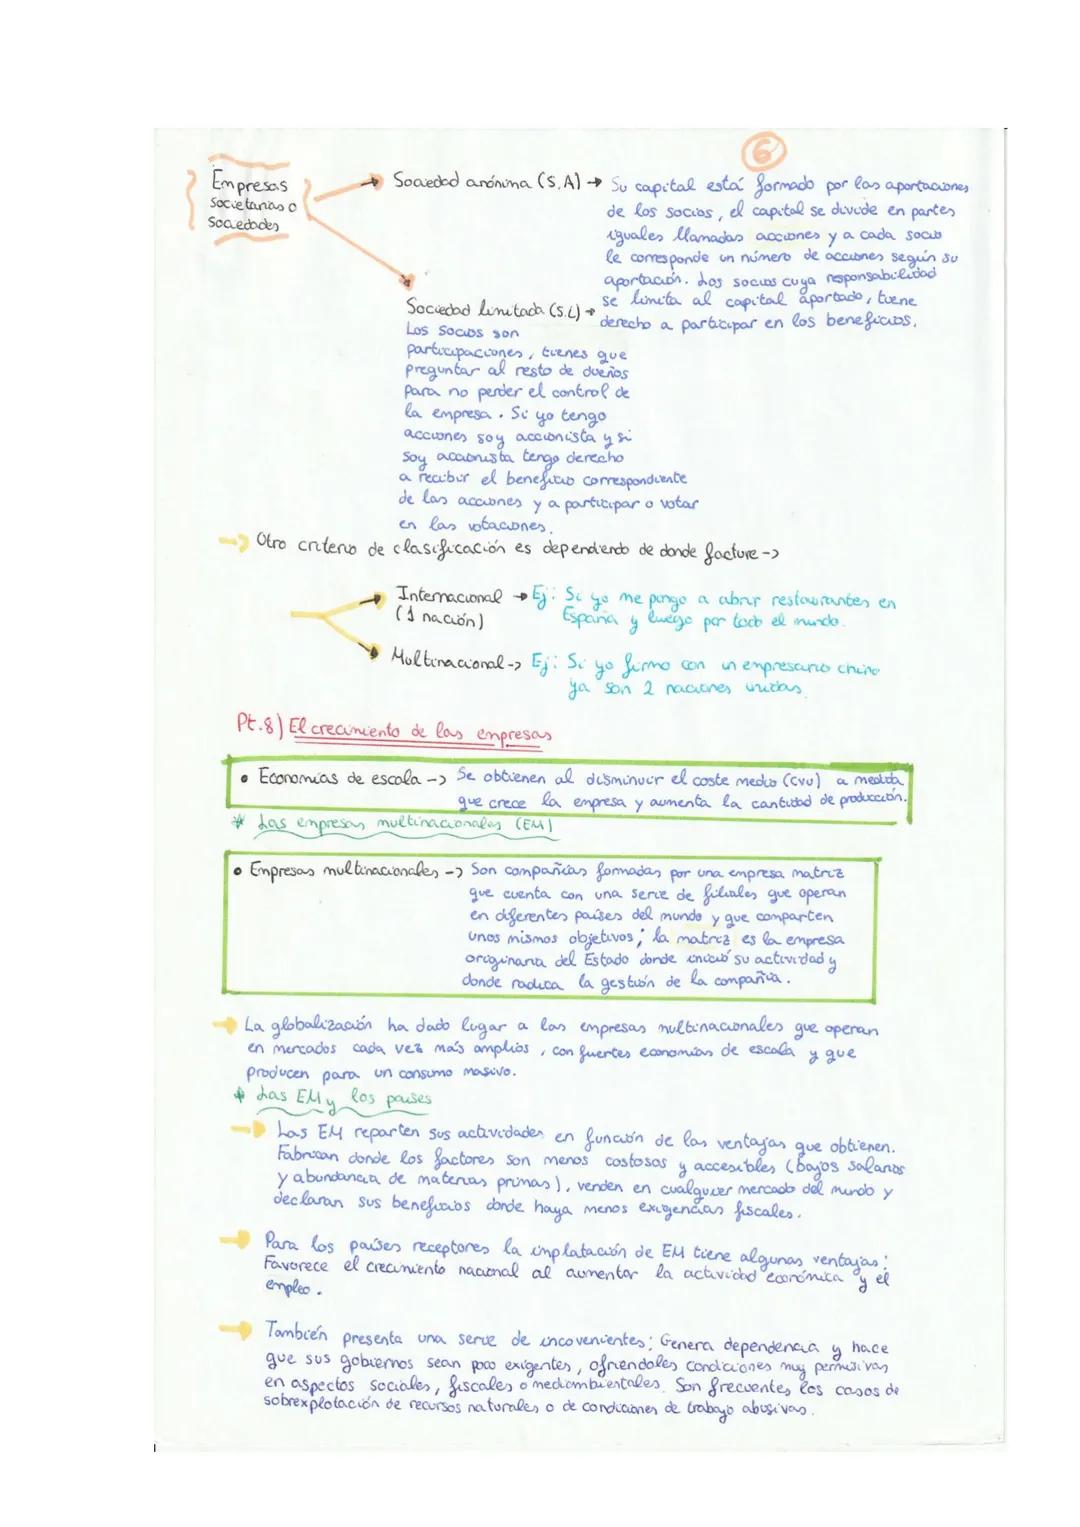 6
Empresas
societarias o
sociedades
Sociedad anónima (S.A) → Su capital está formado por las aportaciones
de los socios, el capital se divide en partes
iguales llamadas acciones y a cada socio
le corresponde un número de acciones según su
aportación. Los socios cuya responsabilidad
se limita al capital aportado, tiene
derecho a participar en los beneficios.
Sociedad limitada (S.L) →
Los socios son
participaciones, tienes que
preguntar al resto de dueños
para no perder el control de
la empresa. Si yo tengo
acciones soy accionista y si
soy accionista tengo derecho
a recibir el beneficio correspondiente
de las acciones y a participar o votar
en las votaciones.
→ Otro criterio de clasificación es dependiendo de donde facture ->
Internacional → Ej: Si yo me pongo a abrir restaurantes en
(1 nación) España y luego por todo el mundo.
Multinacional -> Ej: Si yo firmo con un empresario chino
ya son 2 naciones unidas.
Pt.8) El crecimiento de las empresas
• Economías de escala -> Se obtienen al disminuir el coste medio (CVU) a medida
que crece la empresa y aumenta la cantidad de producción.
* Las empresas multinacionales (EM)
• Empresas multinacionales -> Son compañías formadas por una empresa matriz
que cuenta con una serie de filiales que operan
en diferentes países del mundo y que comparten
unos mismos objetivos; la matriz es la empresa
originaria del Estado donde inició su actividad y
donde radica la gestión de la compañía.
→ La globalización ha dado lugar a las empresas multinacionales que operan
en mercados cada vez más amplios, con fuertes economías de escala y que
producen para un consumo masivo.
* Las EM y los países
→ Las EM reparten sus actividades en función de las ventajas que obtienen.
Fabrican donde los factores son menos costosos y accesibles (bajos salarios
y abundancia de materias primas), venden en cualquier mercado del mundo y
declaran sus beneficios donde haya menos exigencias fiscales.
→ Para los países receptores la implatación de EM tiene algunas ventajas:
Favorece el crecimiento nacional al aumentar la actividad económica y el
empleo.
→ También presenta una serie de incovenientes: Genera dependencia y hace
que sus gobiernos sean poco exigentes, ofriendoles condiciones muy permisivas
en aspectos sociales, fiscales o mediambientales. Son frecuentes los casos de
sobrexplotación de recursos naturales o de condiciones de trabajo abusivas.